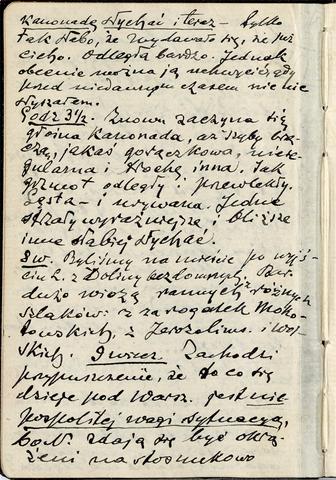 kanonadę słychać i teraz – tylko
tak słabo, że zdawało się, że już
cicho. Odległa bardzo. Jednak
obecnie można ją uchwycić, gdy
przed niedawnym czasem nic nie
słyszałem.
Godz 3½. Znowu zaczyna się
głośna kanonada, aż szyby brzę-
czą, jakaś gorączkowa, niere-
gularna i trochę inna. Jak
grzmot odległy i przewlekły.
Gęsta – i urywana. Jedne
strzały wyraźniejsze i bliższe
inne słabiej słychać.
8 w. Byliśmy na mieście po wyjś-
ciu z Doliny bezdomnych. Bar.
dużo wiozą rannych z różnych
szlaków: z za rogatek Moko-
towskich, z Jerozolims. i Wol-
skich. 9 wiecz. Zachodzi
przypuszczenie, że to co się
dzieje pod Warsz. jest nie-
pospolitej wagi sytuacją,
bo N. zdają się być okrą-
żeni na stosunkowo